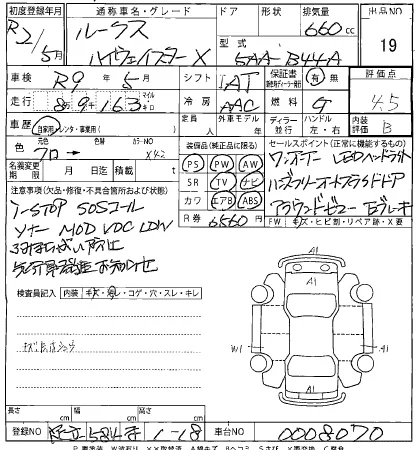 初度登録年月 通称車名・グレード ドア 形状 排気量 出品NO
R2/5月 ルークス 660cc 19
ハイウェイスターX 型式 5AA-B44A
車検 R9年5月 シフト IAT 保証書 有・無 評価点
走行 8万9163 マイル キロ 冷房 AAC 燃料 G 4.5
車歴 自家用・レンタ・事業用( ) 定員 人 外車モデル 年 ディーラー 並行 ハンドル 左・右 内装評価 B
色 元色 クロ → 色替 カラーNO X42
装備品(純正品に限る) セールスポイント(正常に機能するもの)
PS PW AW ワンオーナー LEDヘッドライト
名義変更期限 月 日迄 積載量 t
SR TV ナビ ハンズフリーオートスライドドア
注意事項(欠品・修復・不具合箇所および状態)
カワ エアB ABS アラウンドビュー Eブレーキ
R券 6560円 FW 無・キズ・ヒビ割・リペア跡・X要
I-STOP SOSコール
ソナー MOD VDC LDW
ふみまちがい防止
先行車発進お知らせ
検査員記入 内装 キズ・汚レ・コゲ・穴・スレ・キレ
A1
W1
A1
A1
長さ cm 幅 cm 高さ cm
登録NO 1-18 車台NO 0008070